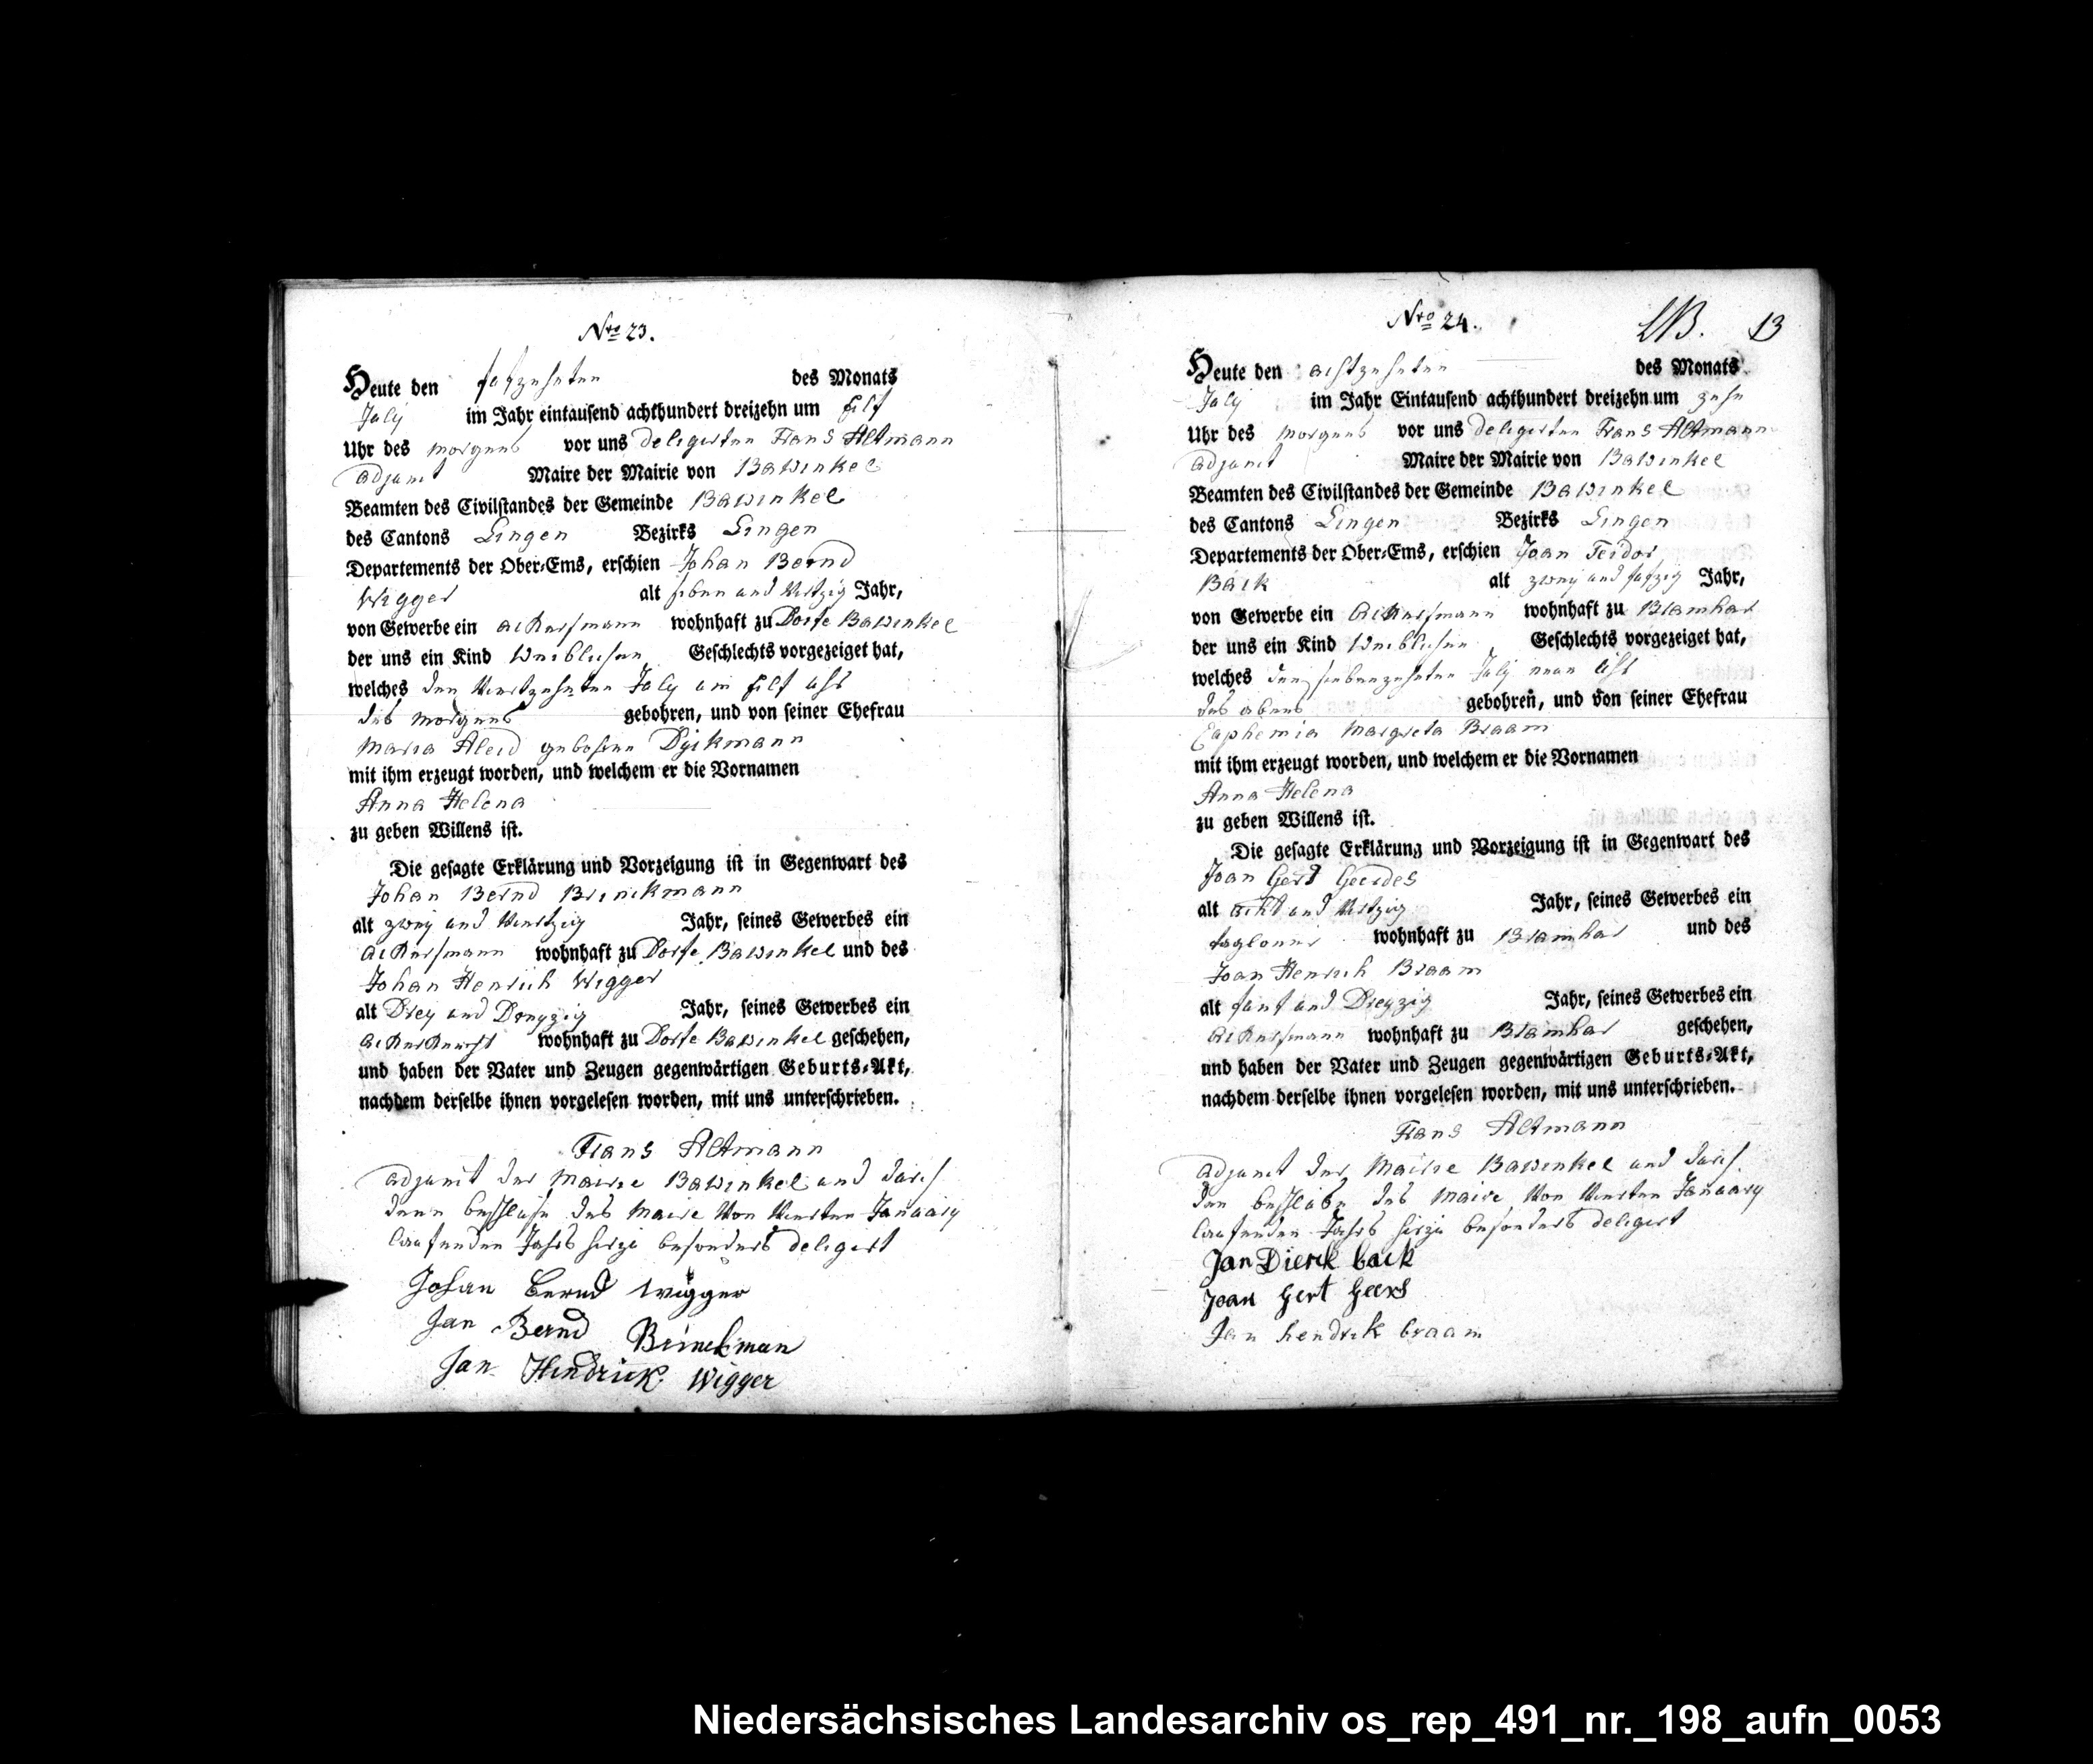 Nro 23.
Heute den fofzehnten des Monats
July im Jahr eintausend achthundert dreizehn um Eilf
Uhr des morgens vor uns delegirten Frans Altmann
adjunct Maire der Mairie von Bawinkel
Beamten des Civilstandes der Gemeinde Bawinkel
des Cantons Lingen Bezirks Lingen
Departements der Ober-Ems, erschien Johan Bernd
Wigger alt sieben und Virtzig Jahr,
von Gewerbe ein Ackersmann wohnhaft zu Dorfe Bawinkel
der uns ein Kind Weiblichen Geschlechts vorgezeiget hat,
welches den Viertzehnten July um Eilf uhr
des morgens gebohren, und von seiner Ehefrau
Maria Aleid gebohren Dyckmann
mit ihm erzeugt worden, und welchem er die Vornamen
Anna Helena
zu geben Willens ist.
Die gesagte Erklärung und Vorzeigung ist in Gegenwart des
Johan Bernd Brinckmann
alt zwey und Viertzig Jahr, seines Gewerbes ein
Ackersmann wohnhaft zu Dorfe Bawinkel und des
Johan Henrich Wigger
alt Drey und Dreyzig Jahr, seines Gewerbes ein
Ackerknecht wohnhaft zu Dorfe Bawinkel geschehen,
und haben der Vater und Zeugen gegenwärtigen Geburts-Akt,
nachdem derselbe ihnen vorgelesen worden, mit uns unterschrieben.
Frans Altmann
adjunct der Mairie Bawinkel und durch
denn beschluße des Maire Von Vierten January
laufenden Jahrs hirzu besonders delegirt
Johan Bernd Wigger
Jan Bernd Brinckman
Jan Hendrick Wigger
Nro 24. 13
Heute den achtzehnten des Monats
July im Jahr Eintausend achthundert dreizehn um zehn
Uhr des morgens vor uns delegirten Frans Altmann
adjunct Maire der Mairie von Bawinkel
Beamten des Civilstandes der Gemeinde Bawinkel
des Cantons Lingen Bezirks Lingen
Departements der Ober-Ems, erschien Joan Teidor
Back alt zwey und fofzig Jahr,
von Gewerbe ein Ackersmann wohnhaft zu Bramhar
der uns ein Kind Weiblichen Geschlechts vorgezeiget hat,
welches den siebenzehnten July neun Uhr
des abens gebohren, und von seiner Ehefrau
Euphemia Margreta Braam
mit ihm erzeugt worden, und welchem er die Vornamen
Anna Helena
zu geben Willens ist.
Die gesagte Erklärung und Vorzeigung ist in Gegenwart des
Joan Gerd Geerdes
alt acht und Virtzig Jahr, seines Gewerbes ein
taglouner wohnhaft zu Bramhar und des
Joan Henrich Braam
alt funf und Dreyzig Jahr, seines Gewerbes ein
Ackersmann wohnhaft zu Bramhar geschehen,
und haben der Vater und Zeugen gegenwärtigen Geburts-Akt,
nachdem derselbe ihnen vorgelesen worden, mit uns unterschrieben.
Frans Altmann
adjunct der Mairie Bawinkel und durch
den beschluße des Maire Von Vierten January
laufenden Jahrs hirzu besonders delegirt
Jan Dierck back
Joan Gert Geers
Jan hendrck braam
Niedersächsisches Landesarchiv os_rep_491_nr._198_aufn_0053